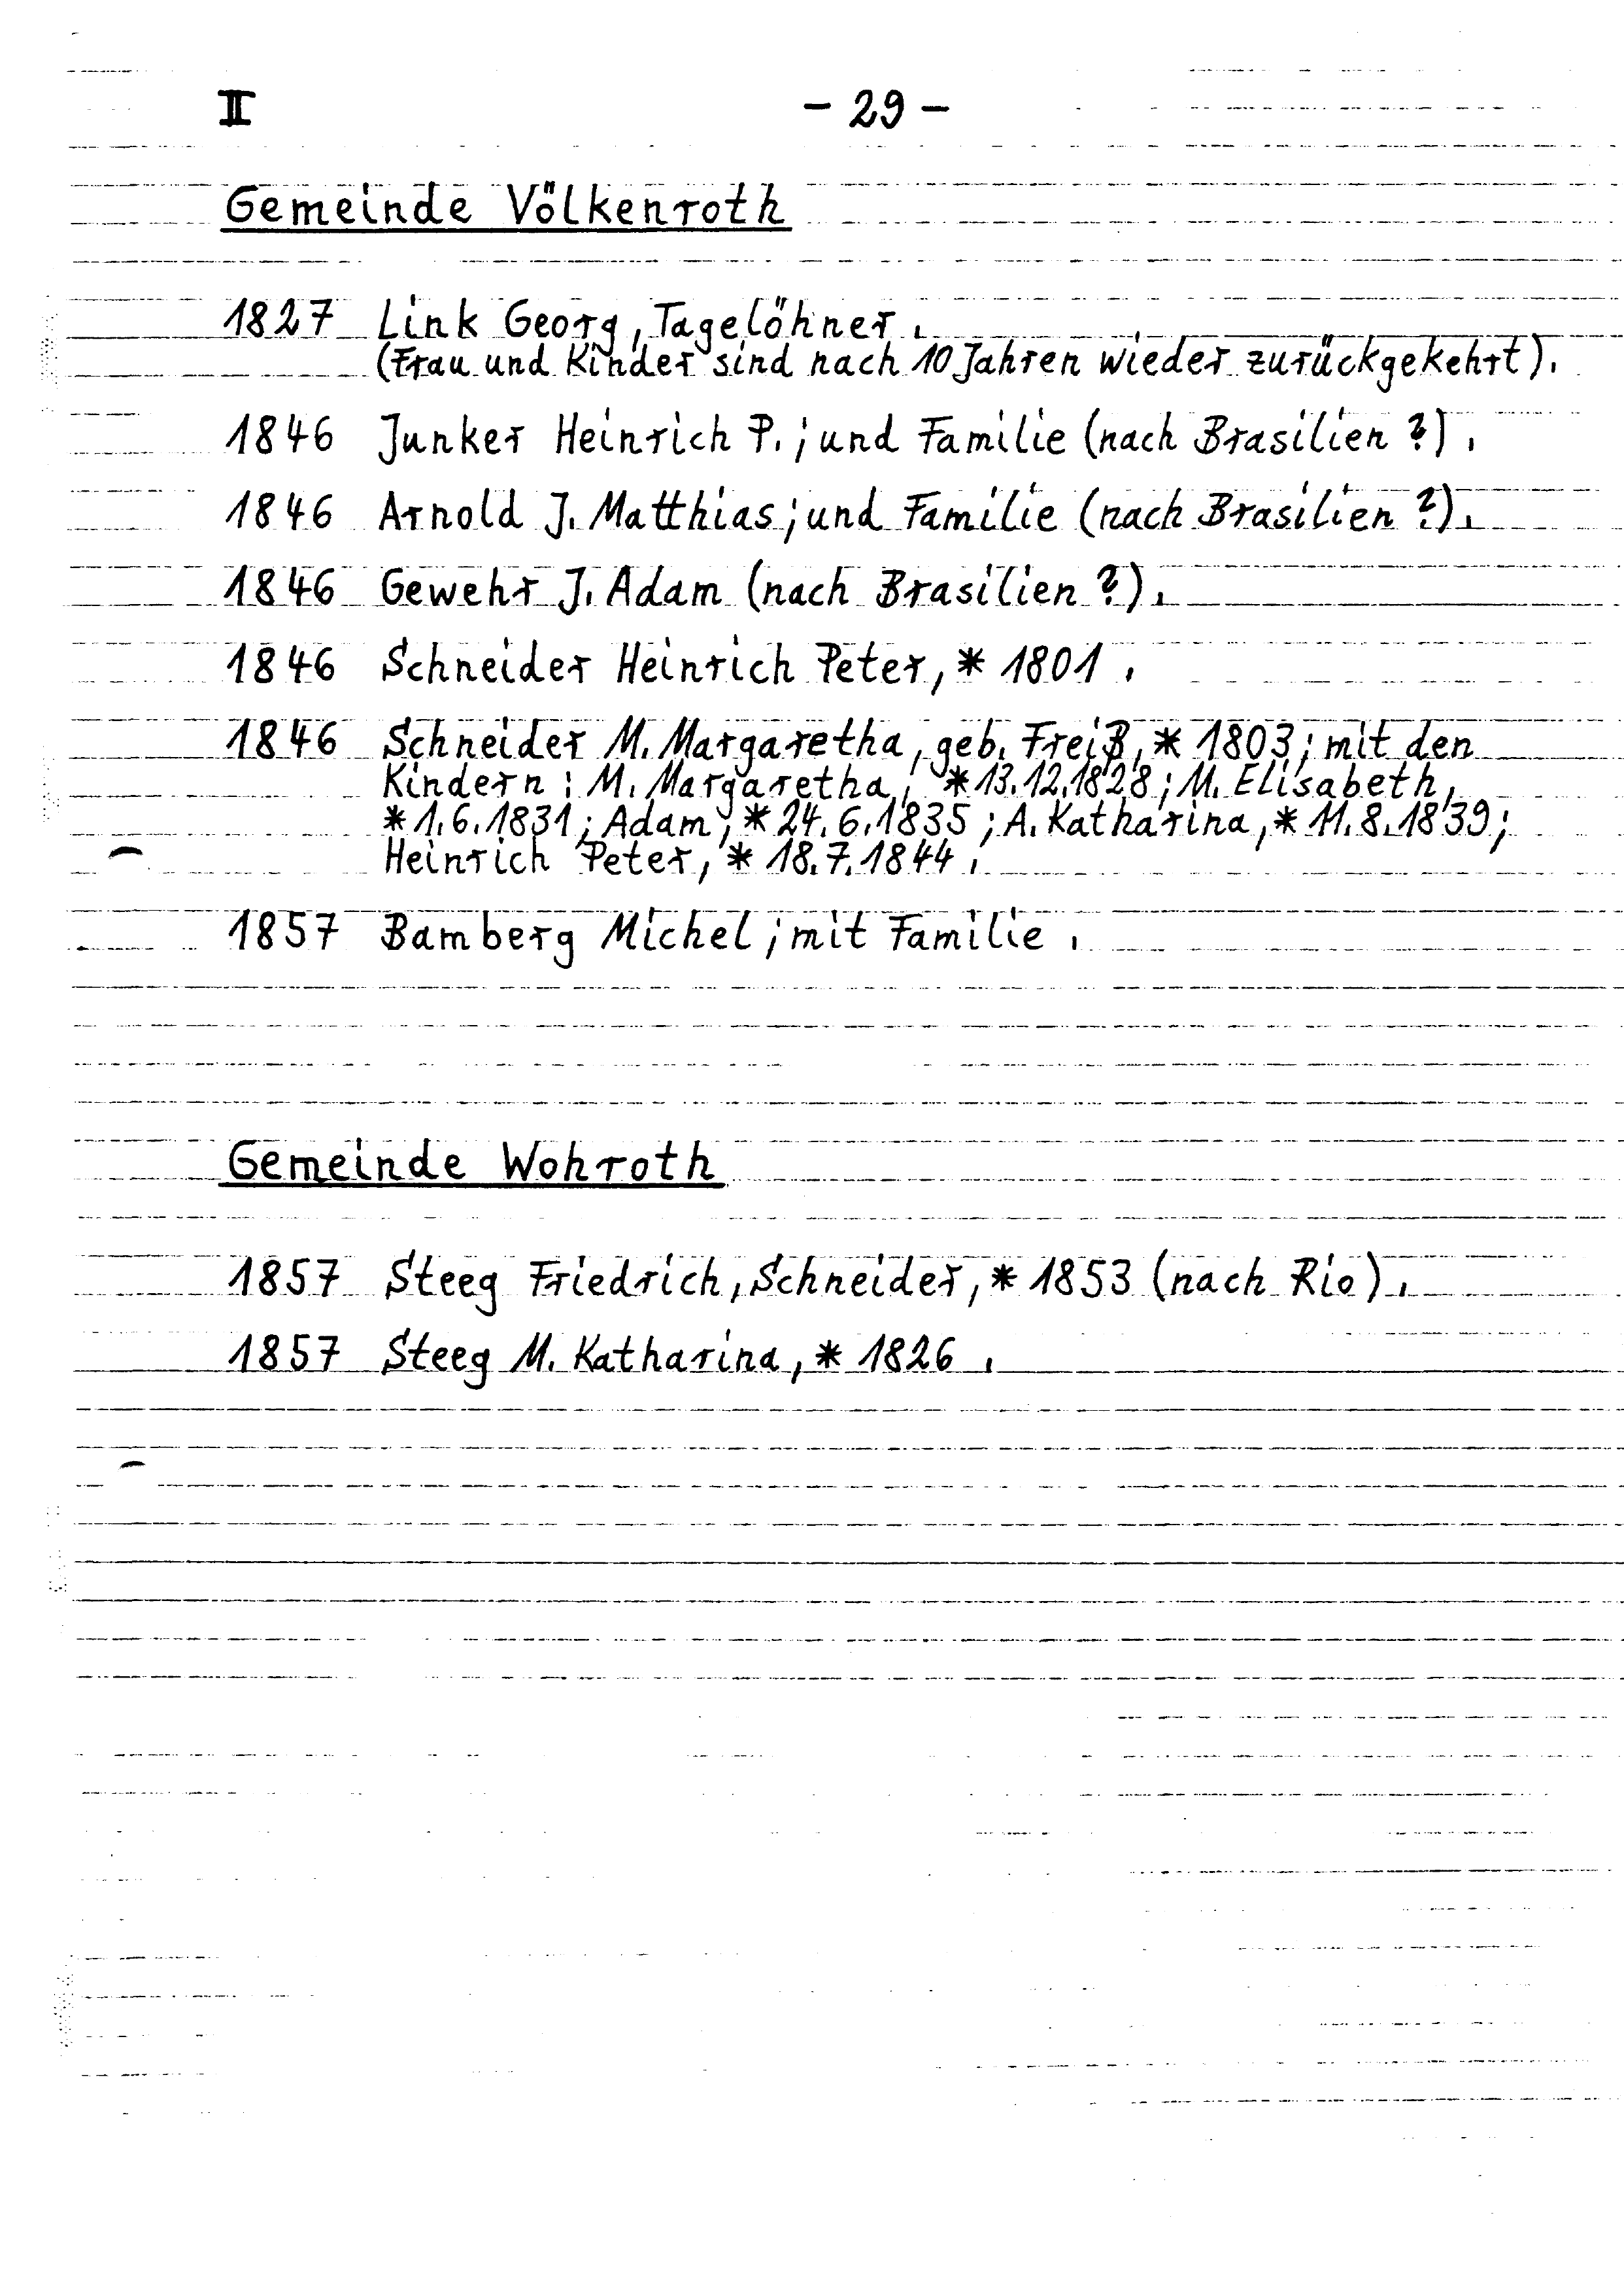 II - 29 -
Gemeinde Völkenroth
1827 Link Georg, Tagelöhner.
(Frau und Kinder sind nach 10 Jahren wieder zurückgekehrt).
1846 Junker Heinrich P.; und Familie (nach Brasilien ?).
1846 Arnold J. Matthias; und Familie (nach Brasilien ?).
1846 Gewehr J. Adam (nach Brasilien ?).
1846 Schneider Heinrich Peter, * 1801.
1846 Schneider M. Margaretha, geb. Freiß, * 1803; mit den
Kindern: M. Margaretha, * 13.12.1828; M. Elisabeth,
* 1.6.1831; Adam, * 24.6.1835; A. Katharina, * 11.8.1839;
Heinrich Peter, * 18.7.1844.
1857 Bamberg Michel; mit Familie.
Gemeinde Wohnroth
1857 Steeg Friedrich, Schneider, * 1853 (nach Rio).
1857 Steeg M. Katharina, * 1826.